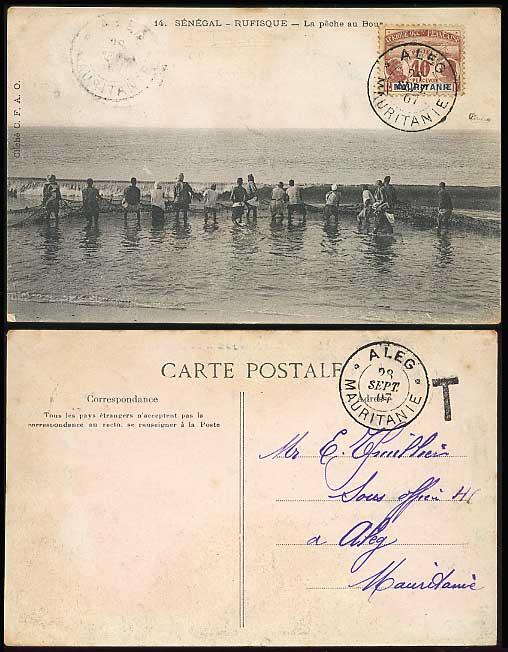 14. SÉNÉGAL - RUFISQUE - La pêche au
Cliché C. F. A. O.
AFRIQUE OCC. FRANÇAISE
10
A PERCEVOIR
MAURITANIE
ALEG
SEPT
07
MAURITANIE
CARTE POSTALE
Correspondance
Tous les pays étrangers n'acceptent pas la
correspondance au recto, se renseigner à la Poste
Adresse
ALEG
28
SEPT.
07
MAURITANIE
T
Mr E.
Sous officier
a Aleg
Mauritanie